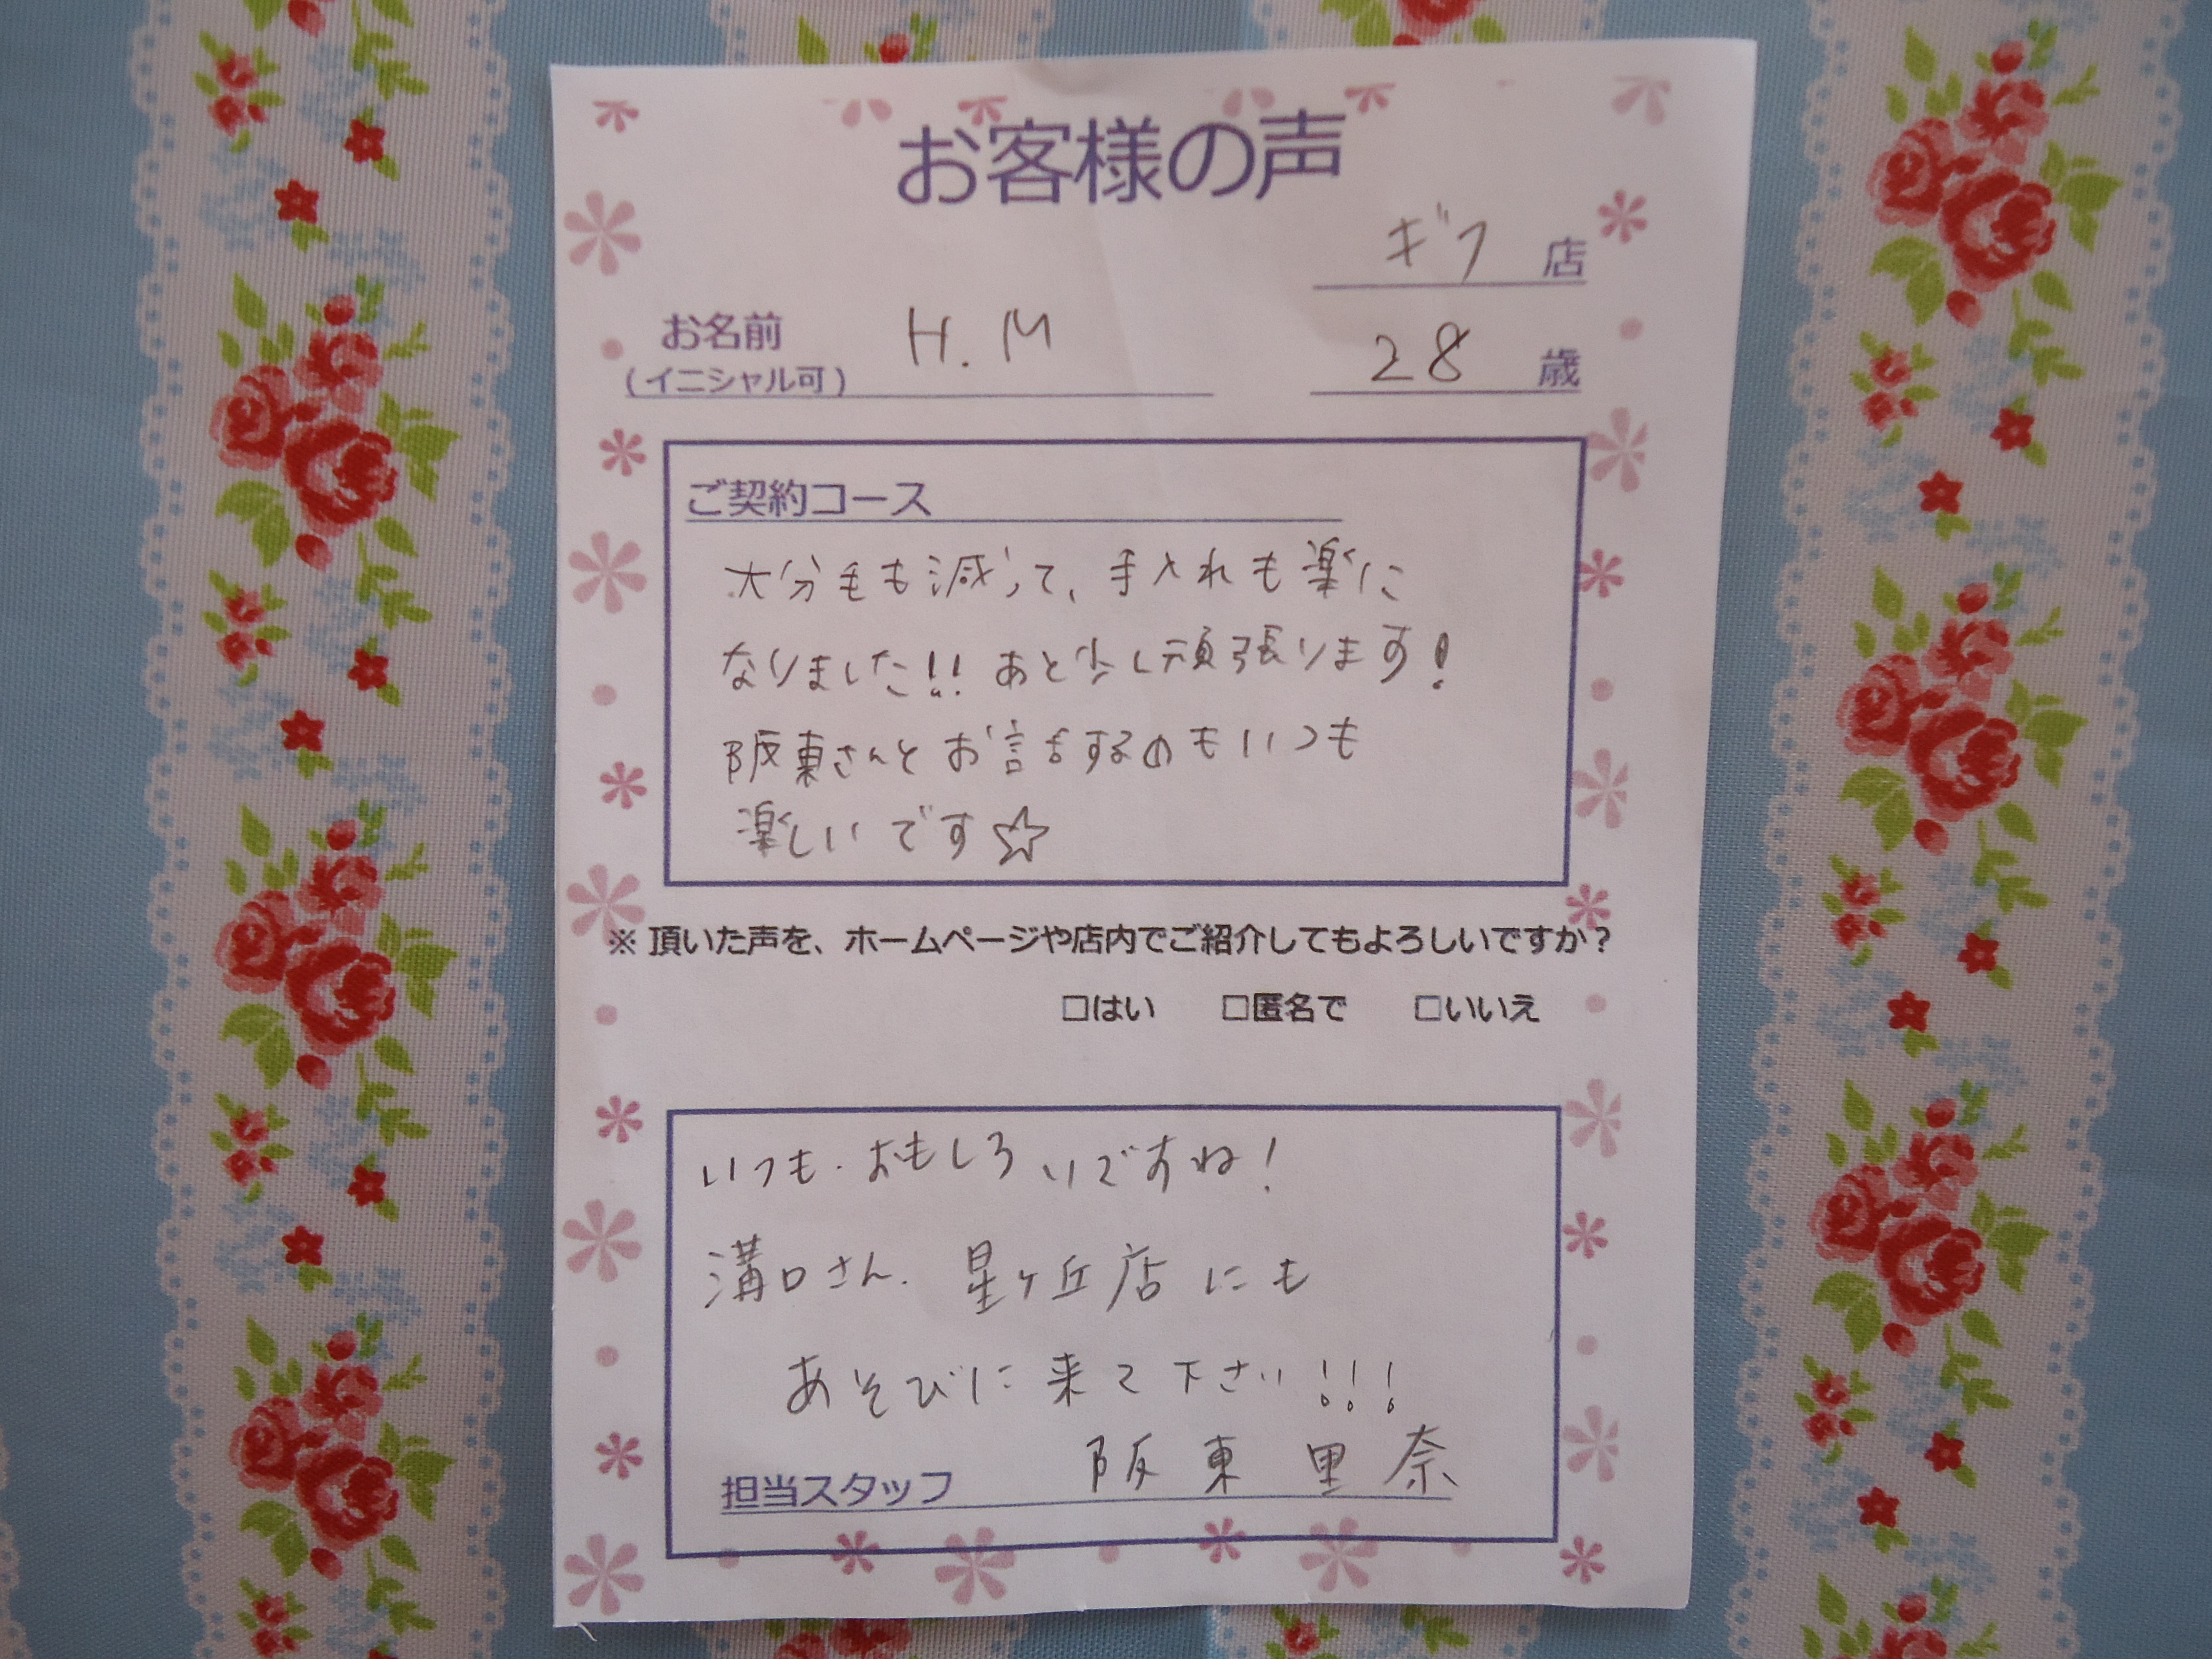 お客様の声
ギフ 店
お名前 H.M 28 歳
(イニシャル可)
ご契約コース
大分毛も減って、手入れも楽に
なりました!! あと少し頑張ります!
阪東さんとお話するのもいつも
楽しいです☆
※ 頂いた声を、ホームページや店内でご紹介してもよろしいですか？
□はい □匿名で □いいえ
いつも.おもしろいですね!
溝口さん. 星ヶ丘店にも
あそびに来て下さい!!!
担当スタッフ 阪東里奈